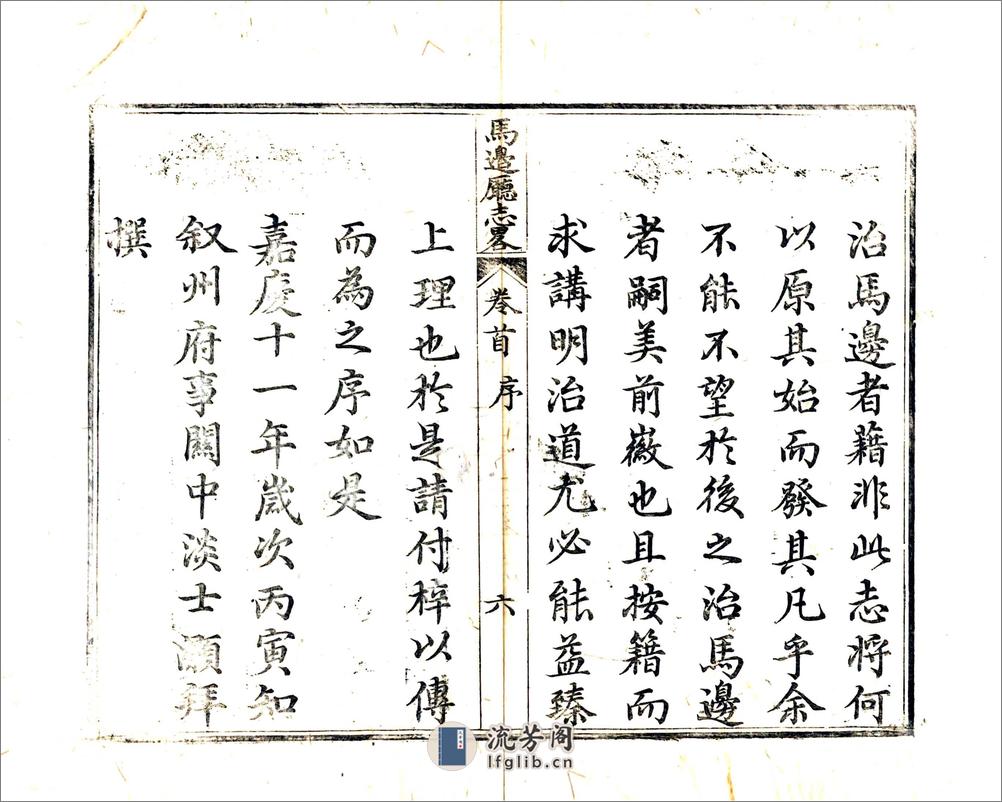 治馬邊者藉非此志將何
以原其始而發其凡乎余
不能不望於後之治馬邊
者嗣美前徽也且按籍而
求講明治道尤必能益臻
馬邊廳志畧 卷首 序 六
上理也於是請付梓以傳
而為之序如是
嘉慶十一年歲次丙寅知
叙州府事關中淡士灝拜
撰
流芳阁
lfglib.cn